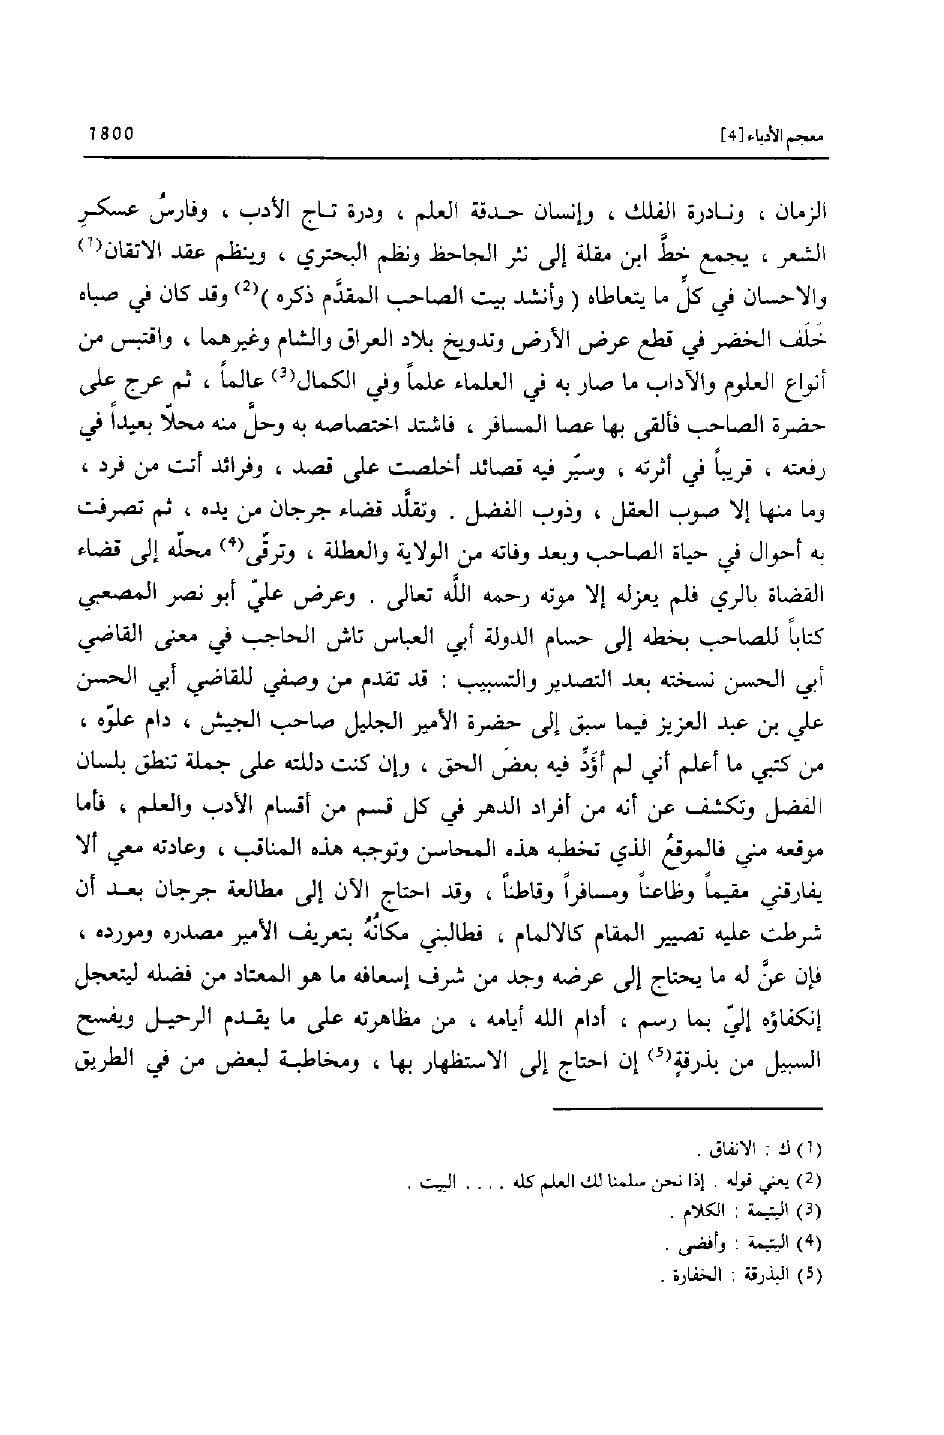 معجم الأدباء [4] 1800
الزمان ، ونادرة الفلك ، وإنسان حدقة العلم ، ودرة تاج الأدب ، وفارسُ عسكرِ
الشعر ، يجمع خطَّ ابن مقلة إلى نثر الجاحظ ونظم البحتري ، وينظم عقد الاتقان(1)
والاحسان في كلِّ ما يتعاطاه ( وأنشد بيت الصاحب المقدَّم ذكره )(2) وقد كان في صباه
خَلَف الخضر في قطع عرض الأرض وتدويخ بلاد العراق والشام وغيرهما ، واقتبس من
أنواع العلوم والآداب ما صار به في العلماء علماً وفي الكمال(3) عالماً ، ثم عرج على
حضرة الصاحب فألقى بها عصا المسافر ، فاشتد اختصاصه به وحلَّ منه محلاً بعيداً في
رفعته ، قريباً في أثرته ، وسيّر فيه قصائد أخلصت على قصد ، وفرائد أتت من فرد ،
وما منها إلا صوب العقل ، وذوب الفضل . وتقلَّد قضاء جرجان من يده ، ثم تصرفت
به أحوال في حياة الصاحب وبعد وفاته من الولاية والعطلة ، وترقّى(4) محلّه إلى قضاء
القضاة بالري فلم يعزله إلا موته رحمه اللَّه تعالى . وعرض عليّ أبو نصر المصعبي
كتاباً للصاحب بخطه إلى حسام الدولة أبي العباس تاش الحاجب في معنى القاضي
أبي الحسن نسخته بعد التصدير والتسبيب : قد تقدم من وصفي للقاضي أبي الحسن
علي بن عبد العزيز فيما سبق إلى حضرة الأمير الجليل صاحب الجيش ، دام علوّه ،
من كتبي ما أعلم أني لم أؤَدِّ فيه بعضَ الحق ، وإن كنت دللته على جملة تنطق بلسان
الفضل وتكشف عن أنه من أفراد الدهر في كل قسم من أقسام الأدب والعلم ، فأما
موقعه مني فالموقعُ الذي تخطبه هذه المحاسن وتوجبه هذه المناقب ، وعادته معي ألا
يفارقني مقيماً وظاعناً ومسافراً وقاطناً ، وقد احتاج الآن إلى مطالعة جرجان بعد أن
شرطت عليه تصيير المقام كالالمام ، فطالبني مكانُهُ بتعريف الأمير مصدره ومورده ،
فإن عنَّ له ما يحتاج إلى عرضه وجد من شرف إسعافه ما هو المعتاد من فضله ليتعجل
إنكفاؤه إليّ بما رسم ، أدام الله أيامه ، من مظاهرته على ما يقدم الرحيل ويفسح
السبيل من بذرقةٍ(5) إن احتاج إلى الاستظهار بها ، ومخاطبة لبعض من في الطريق
(1) ك : الانفاق .
(2) يعني قوله . إذا نحن سلمنا لك العلم كله . . . . البيت .
(3) اليتيمة : الكلام .
(4) اليتيمة : وأفضى .
(5) البذرقة : الخفارة .